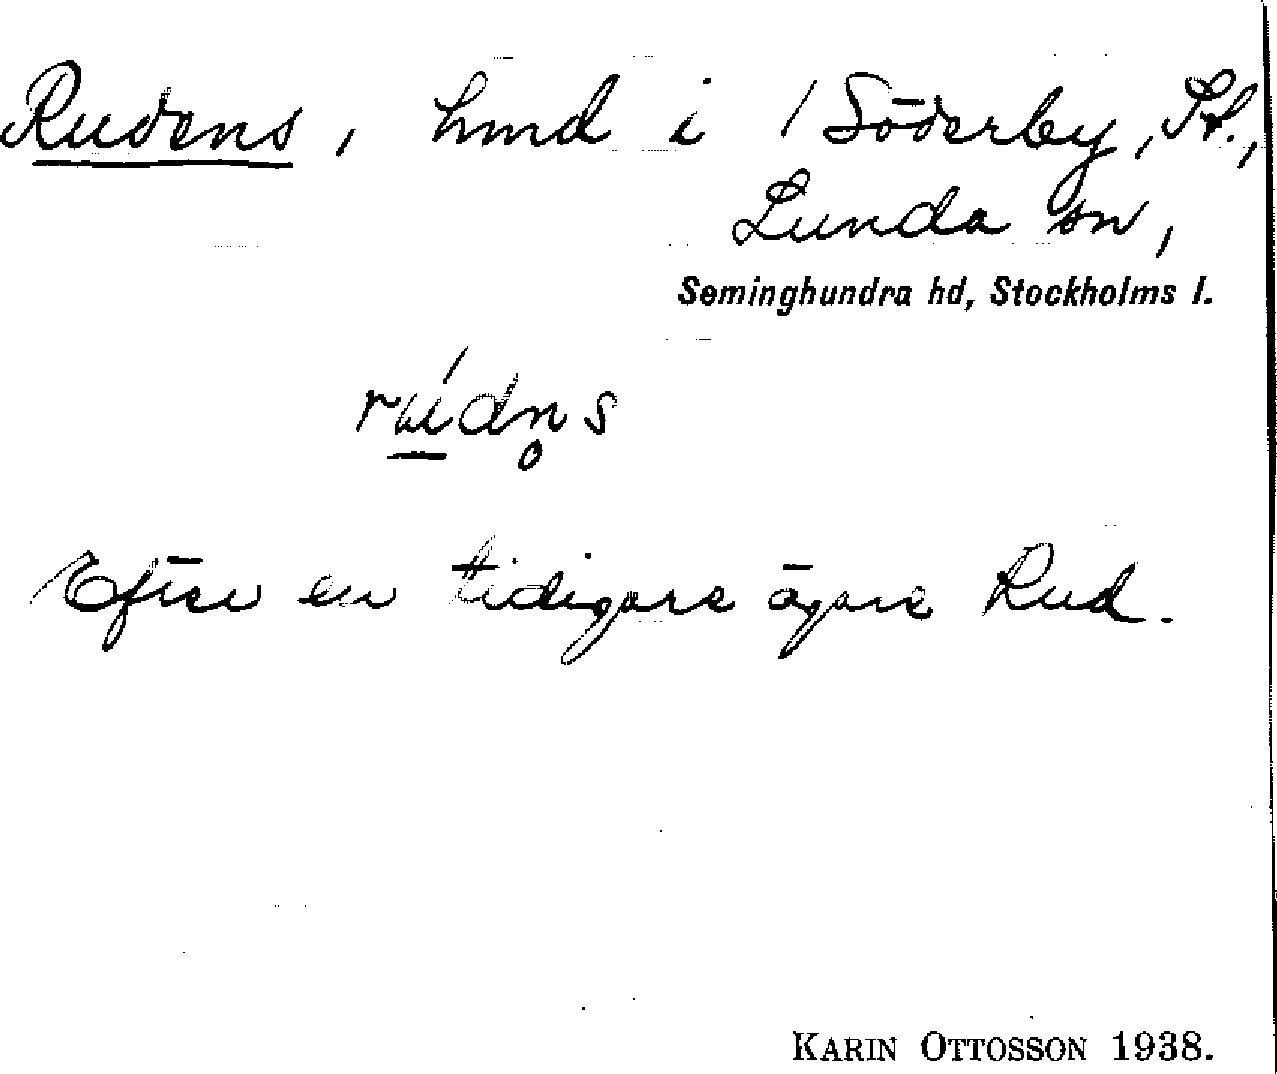 Rudens, hmd i Söderby, St.,
Lunda sn,
Seminghundra hd, Stockholms l.
rúdn̥s
Efter en tidigare ägare Rud.
KARIN OTTOSSON 1938.